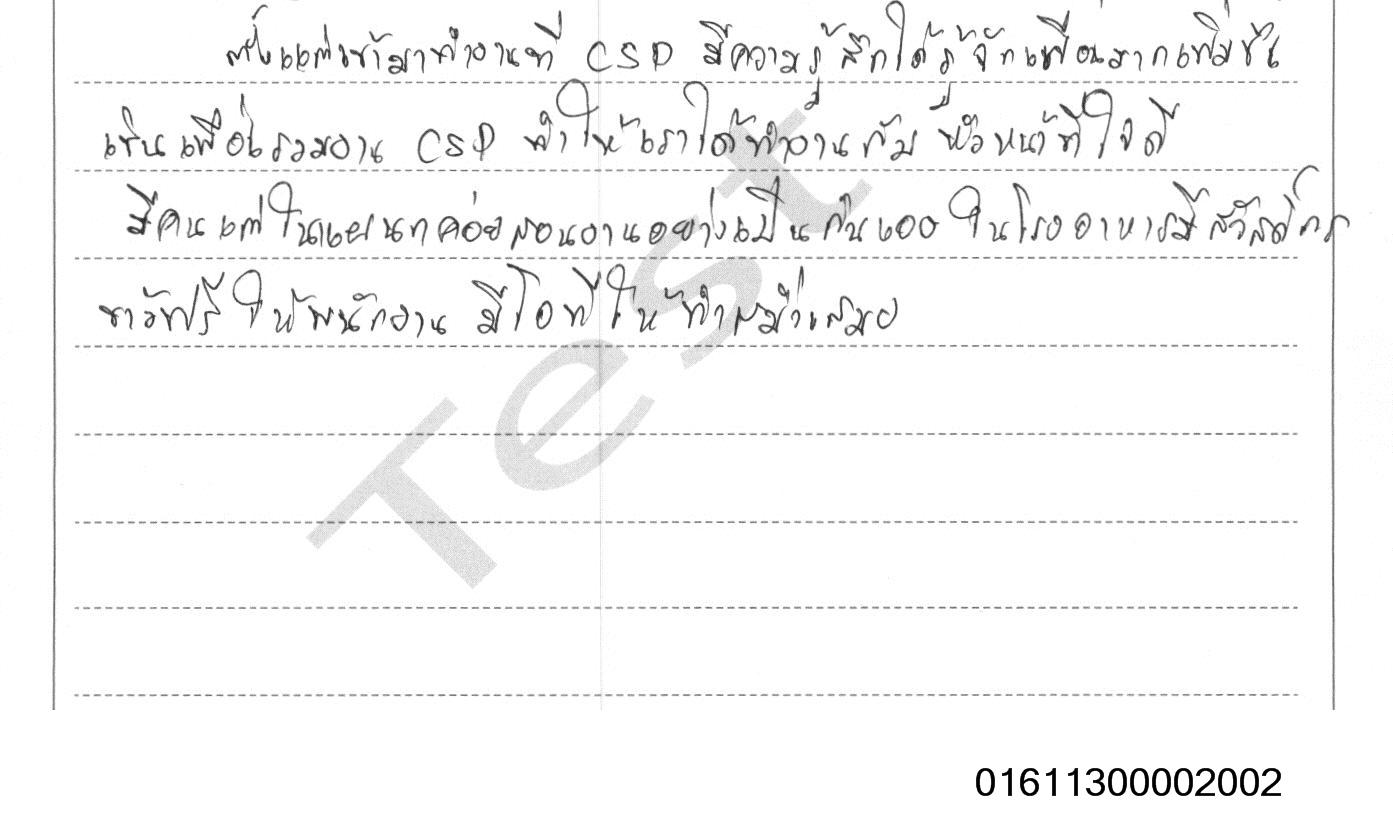 ตั้งแต่เข้ามาทำงานที่ CSP มีความรู้สึกได้รู้จักเพื่อนมากเพิ่มขึ้น
เช่นเพื่อนร่วมงาน CSP ทำให้เราได้ทำงานกับ หัวหน้าที่ใจดี
มีคนแก่ในแผนกค่อยสอนงานอย่างเป็นกันเอง ในโรงอาหารมีสวัสดิการ
ข้าวฟรี ให้พนักงาน มีโอทีให้ทำสม่ำเสมอ
Test
01611300002002